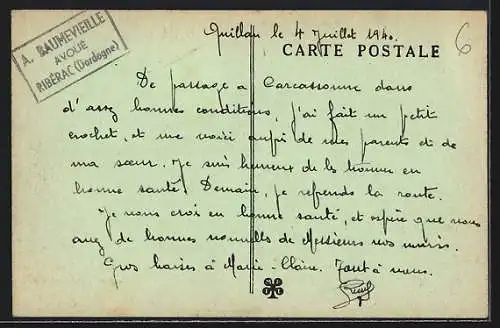 A. BAUMEVIEILLE
AVOUÉ
RIBÉRAC (Dordogne)
Quillan le 4 Juillet 1940.
6
CARTE POSTALE
De passage a Carcassonne dans
d'assez bonnes conditions, j'ai fait un petit
crochet, et me voici auprès de mes parents et de
ma sœur. Je suis heureux de les trouver en
bonne santé. Demain, je reprends la route.
Je vous crois en bonne santé, et espère que vous
avez de bonnes nouvelles de Messieurs vos maris.
Gros baisers à Marie-Claire. Tout à vous.